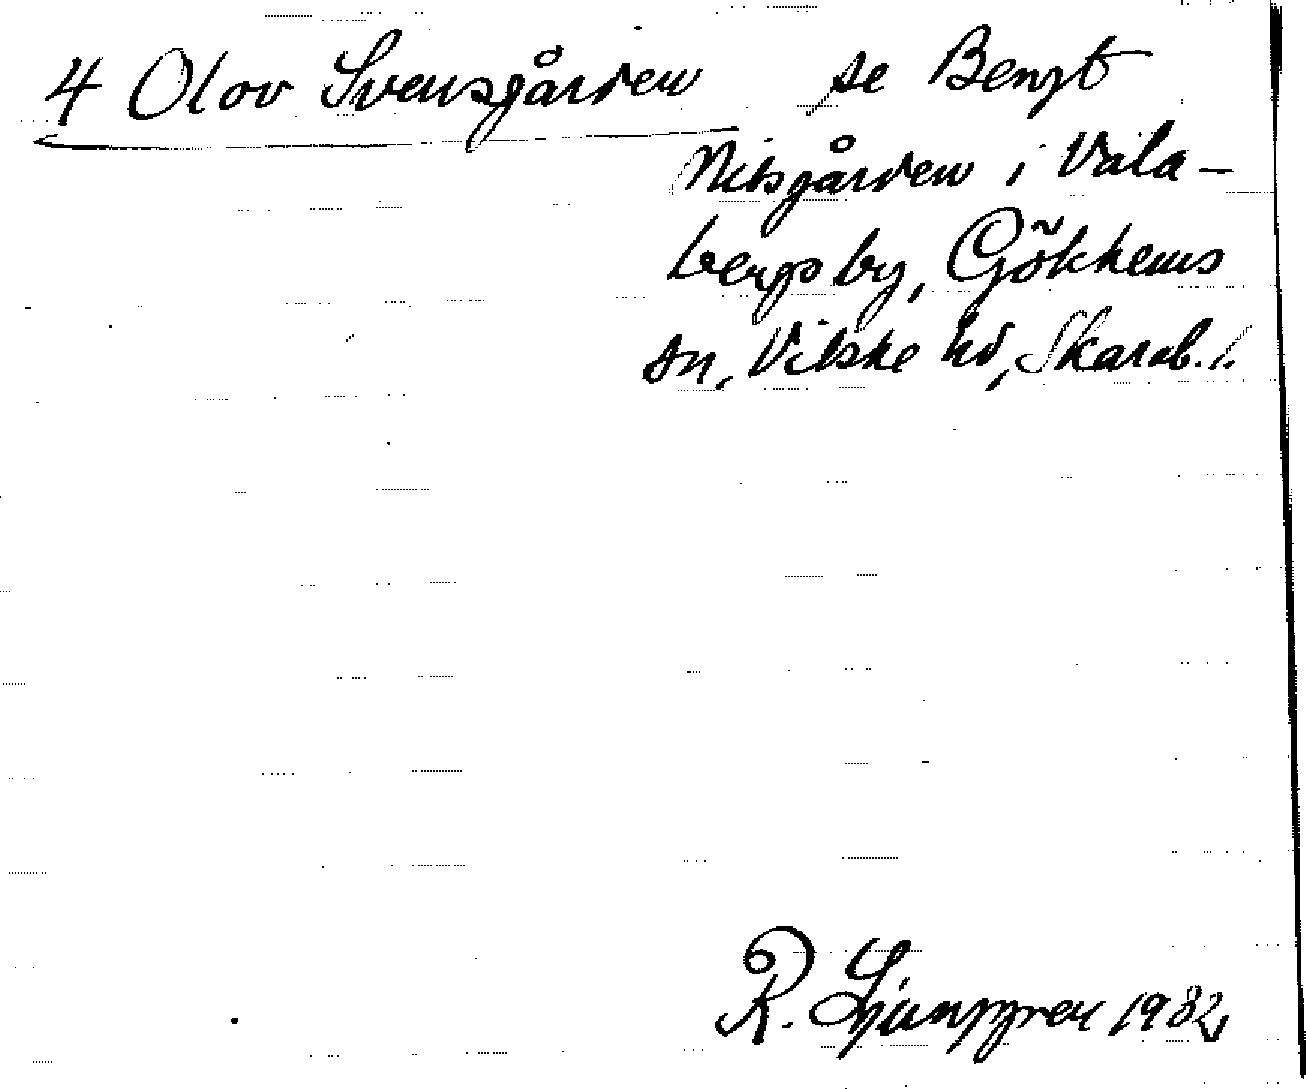 4 Olov Svensgården se Bengt
Nilsgården i Vala-
bergs by, Gökhems
sn, Vilske hd, Skarab. l.
R. Ljunggren 1932